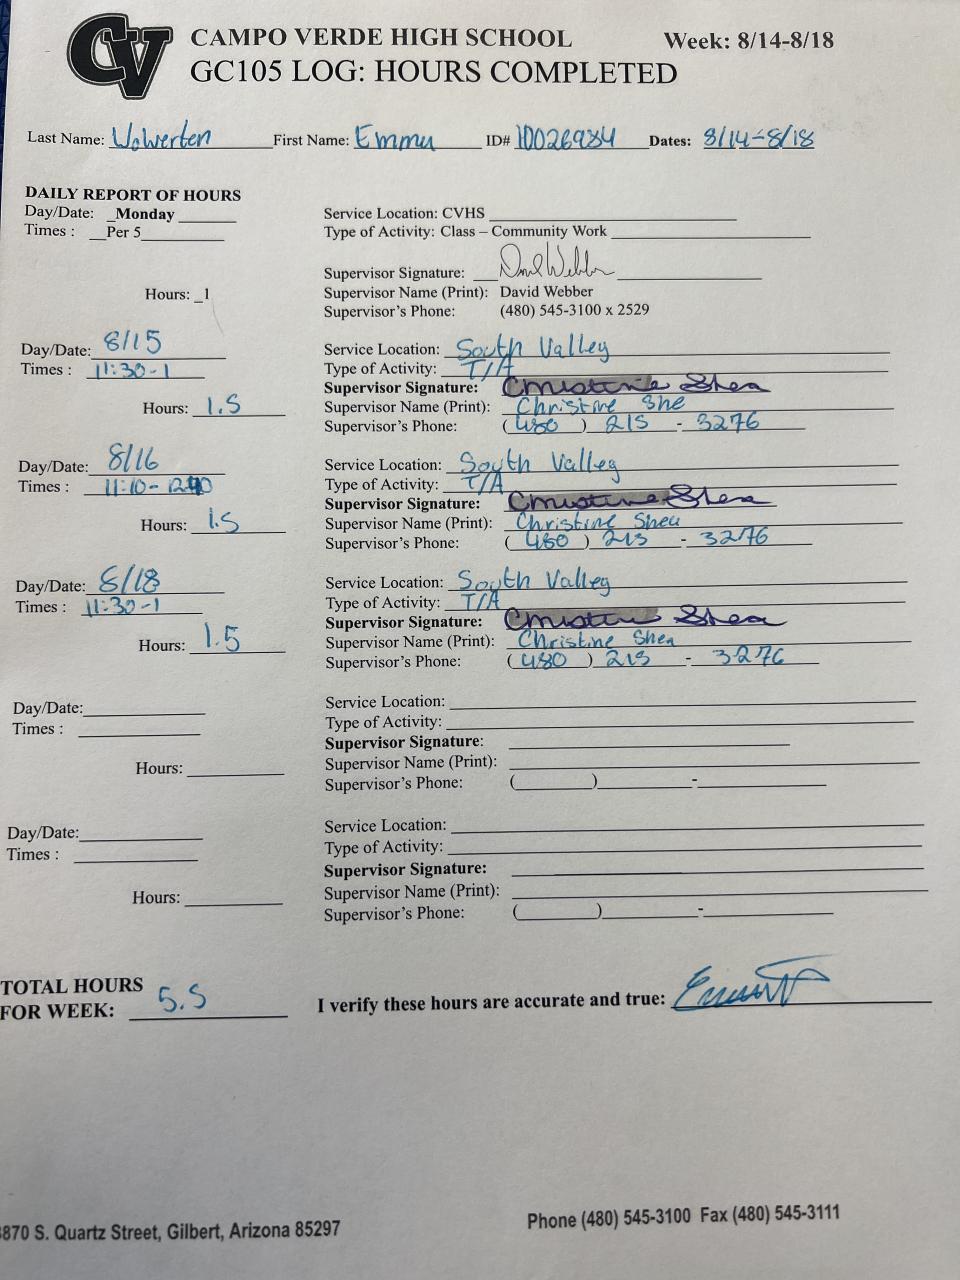 CV CAMPO VERDE HIGH SCHOOL Week: 8/14-8/18
GC105 LOG: HOURS COMPLETED
Last Name: Wolverten First Name: Emma ID# 10026984 Dates: 8/14-8/18
DAILY REPORT OF HOURS
Day/Date: _Monday
Times : Per 5
Hours: _1
Service Location: CVHS
Type of Activity: Class – Community Work
Supervisor Signature: David Webber
Supervisor Name (Print): David Webber
Supervisor's Phone: (480) 545-3100 x 2529
Day/Date: 8/15
Times : 11:30-1
Hours: 1.5
Service Location: South Valley
Type of Activity: T/A
Supervisor Signature: Christine Shea
Supervisor Name (Print): Christine She
Supervisor's Phone: (480) 215 - 3276
Day/Date: 8/16
Times : 11:10-
Hours: 1.5
Service Location: South Valley
Type of Activity: T/A
Supervisor Signature: Christine Shea
Supervisor Name (Print): Christine Shea
Supervisor's Phone: (480) 215 - 3276
Day/Date: 8/18
Times : 11:30-1
Hours: 1.5
Service Location: South Valley
Type of Activity: T/A
Supervisor Signature: Christine Shea
Supervisor Name (Print): Christine Shea
Supervisor's Phone: (480) 215 - 3276
Day/Date:
Times :
Hours:
Service Location:
Type of Activity:
Supervisor Signature:
Supervisor Name (Print):
Supervisor's Phone: ( ) -
Day/Date:
Times :
Hours:
Service Location:
Type of Activity:
Supervisor Signature:
Supervisor Name (Print):
Supervisor's Phone: ( ) -
TOTAL HOURS
FOR WEEK: 5.5
I verify these hours are accurate and true:
870 S. Quartz Street, Gilbert, Arizona 85297 Phone (480) 545-3100 Fax (480) 545-3111